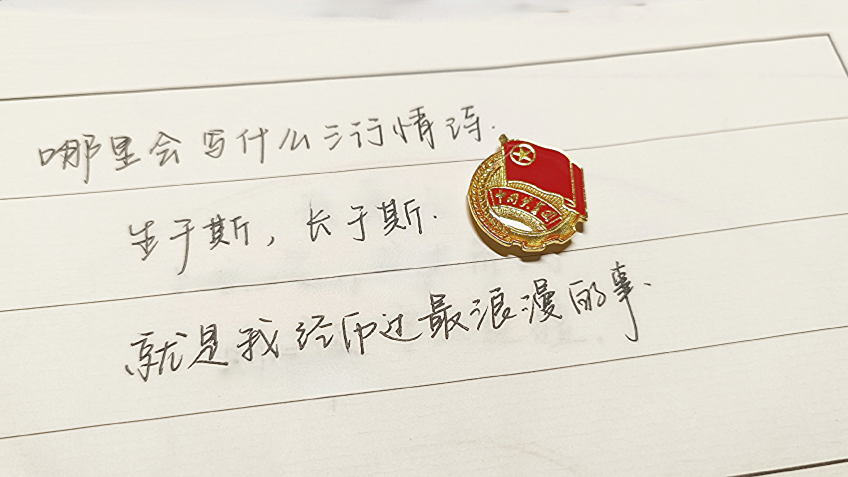 哪里会写什么三行情诗.
生于斯，长于斯.
就是我经历过最浪漫的事.
中国共青团